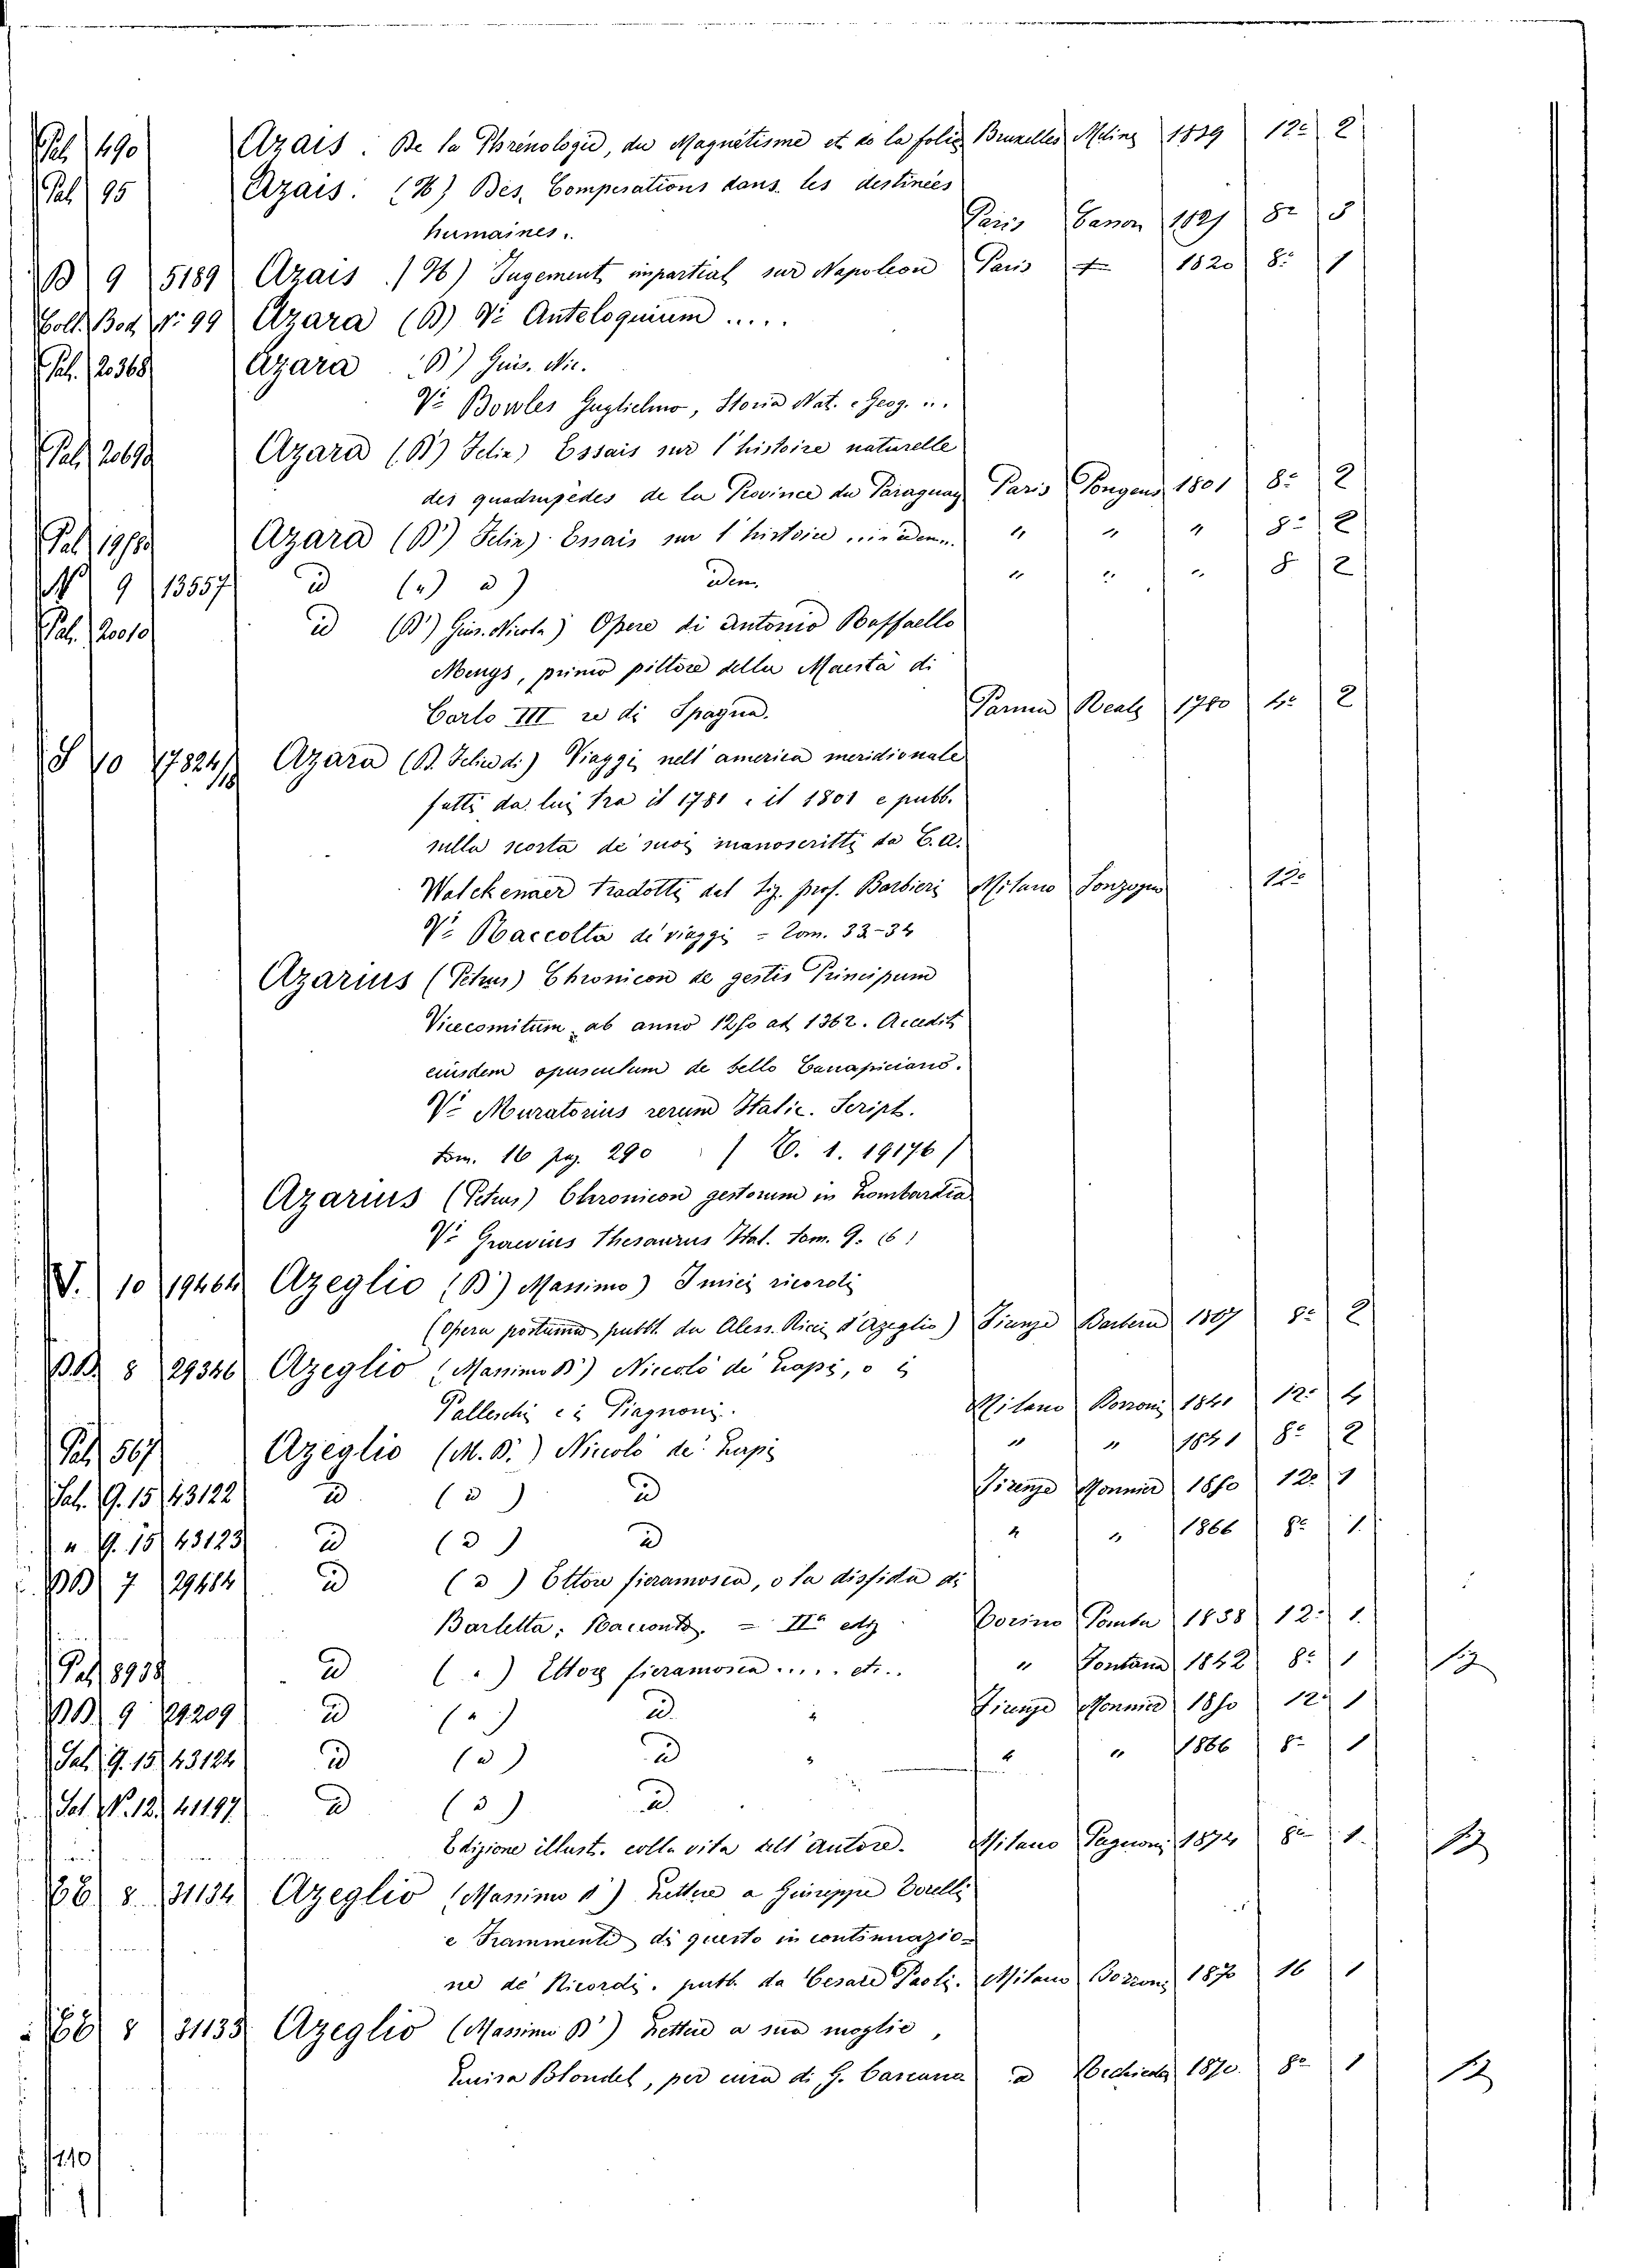 Pal. 490 Azais. De la Phrénologie, du Magnétisme et de la folie Bruxelles Meline 1839 12º 2
Pal. 95 Azais. (H) Des. Compesations dans les destinées
humaines. Paris Canon 1821 8º 3
B 9 5189 Azais (H) Jugement impartial sur Napoleon Paris 1820 8º 1
Coll. Bod. Nº 99 Azara (B) Vi Anteloquium .....
Pal. 20368 Azara B) Gius. Nic.
Vº Bowles Guglielmo, Storia Nat. e Geog. ..
Pal. Azara (B) Felix) Essais sur l'histoire naturelle
des quadrupèdes de la Province du Paraguay Paris Pougens 1801 8º 2
Pal. Azara (B) Felix) Essais sur l'histoire " " " 8º 2
N 9 13557 id (") ") idem " " " 8 2
Pal. 20010 id (B) Gius. Nicola) Opere di Antonio Raffaello
Mengs, primo pittore della Maestà di
Carlo III re di Spagna. Parma Reale 1780 4º 2
S 10 17824/18 Azara (B. Felice di) Viaggi nell'america meridionale
fatti da lui tra il 1781 e il 1801 e pubb.
sulla scorta de' suoi manoscritti da C. A.
Walckenaer tradotti dal Sig. prof. Barbieri Milano Sonzogno 12º
Vº Raccolta de' viaggi = Tom. 33-34
Azarius (Petrus) Chronicon de gestis Principum
Vicecomitum ab anno 1250 ad 1362. Accedit
eiusdem opusculum de bello Canapiciano.
Vº Muratorius rerum Italic. Script.
tom. 16 pag. 290 / C. 1. 19176 /
Azarius (Petrus) Chronicon gestorum in Lombardia
Vº Graevius Thesaurus Ital. tom. 9. (6)
V. 10 19464 Azeglio (B') Massimo) I miei ricordi
(Opera postuma pubbl. da Aless. Ricci d'Azeglio) Firenze Barbera 1867 8º 2
BB 8 29346 Azeglio (Massimo B') Niccolò de' Lapi, o i
Palleschi e i Piagnoni. Milano Borroni 1841 12º 4
Pal. 567 Azeglio (M. B.) Niccolò de' Lapi " " 1841 8º 2
Sal. G. 15 43122 id (id) id Firenze Monnier 1850 12º 1
" G. 15 43123 id (id) id " " 1866 8º 1.
BB 7 29484 id (id) Ettore fieramosca, o la disfida di
Barletta; Racconto. = IIª ediz Torino Pomba 1838 12º 1.
Pal. 8938 id (") Ettore fieramosca..... etc.. " Fontana 1842 8º 1
BB 9 29209 id (") id " Firenze Monnier 1850 12º 1
Sal. G. 15. 43124 id (id) id " " " 1866 8º 1
Sal. N. 12. 41197 id (id) id
Edizione illust. colla vita dell'autore. Milano Pagnoni 1874 8º 1.
CC 8 31134 Azeglio (Massimo d') Lettere a Giuseppe Torelli
e Frammenti di questo in continuazio-
ne de' Ricordi. pubb. da Cesare Paoli. Milano Borroni 1870 16 1
CC 8 31133 Azeglio (Massimo B') Lettere a sua moglie,
Luisa Blondel, per cura di G. Carcano id Rechiedei 1870. 8º 1